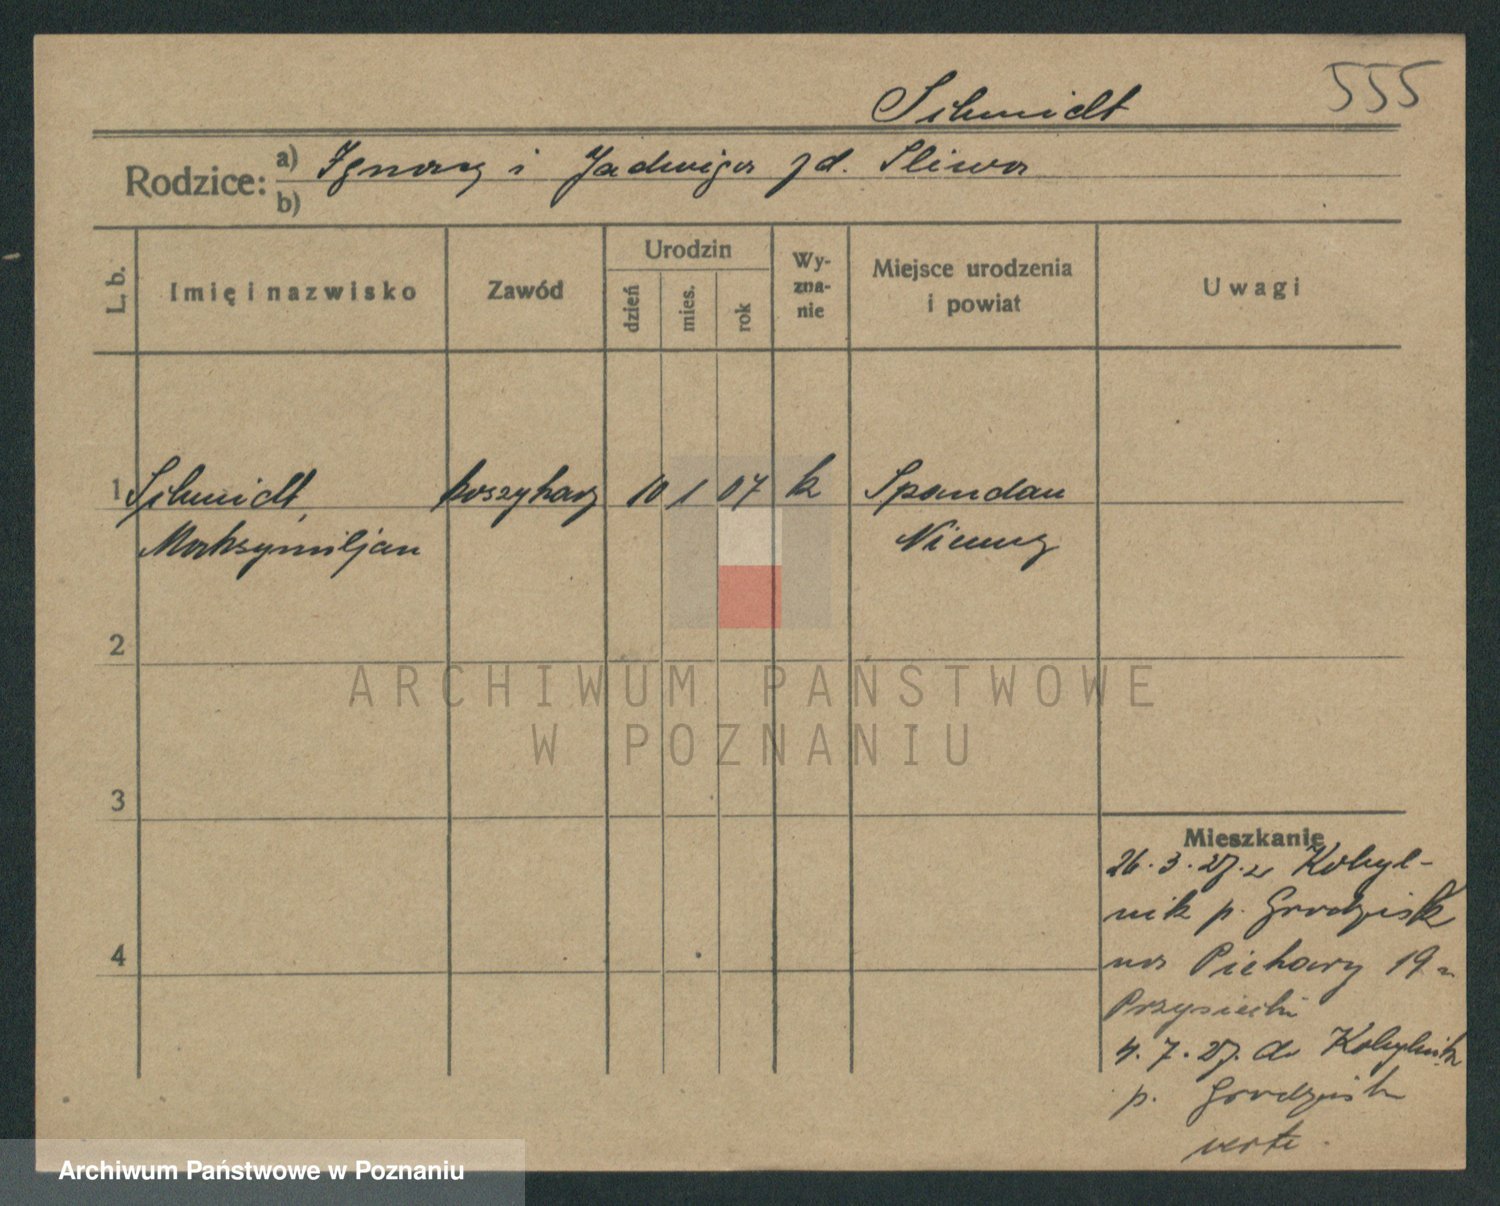 555
Schmidt
Rodzice: a) Ignacy i Jadwiga zd. Sliwa
b)
L. b.
Imię i nazwisko
Zawód
Urodzin
dzień
mies.
rok
Wy-
zna-
nie
Miejsce urodzenia
i powiat
Uwagi
1 Schmidt, koszykarz 10 1 07 k Spandau
Maksymiljan Niemcy
2
ARCHIWUM PAŃSTWOWE
W POZNANIU
3
Mieszkanie
26.3.27. z Kobyl-
nik p. Grodzisk
4
na Piekary 19
4.7.27. do Kobylnik
p. Grodzisk
verte.
Archiwum Państwowe w Poznaniu